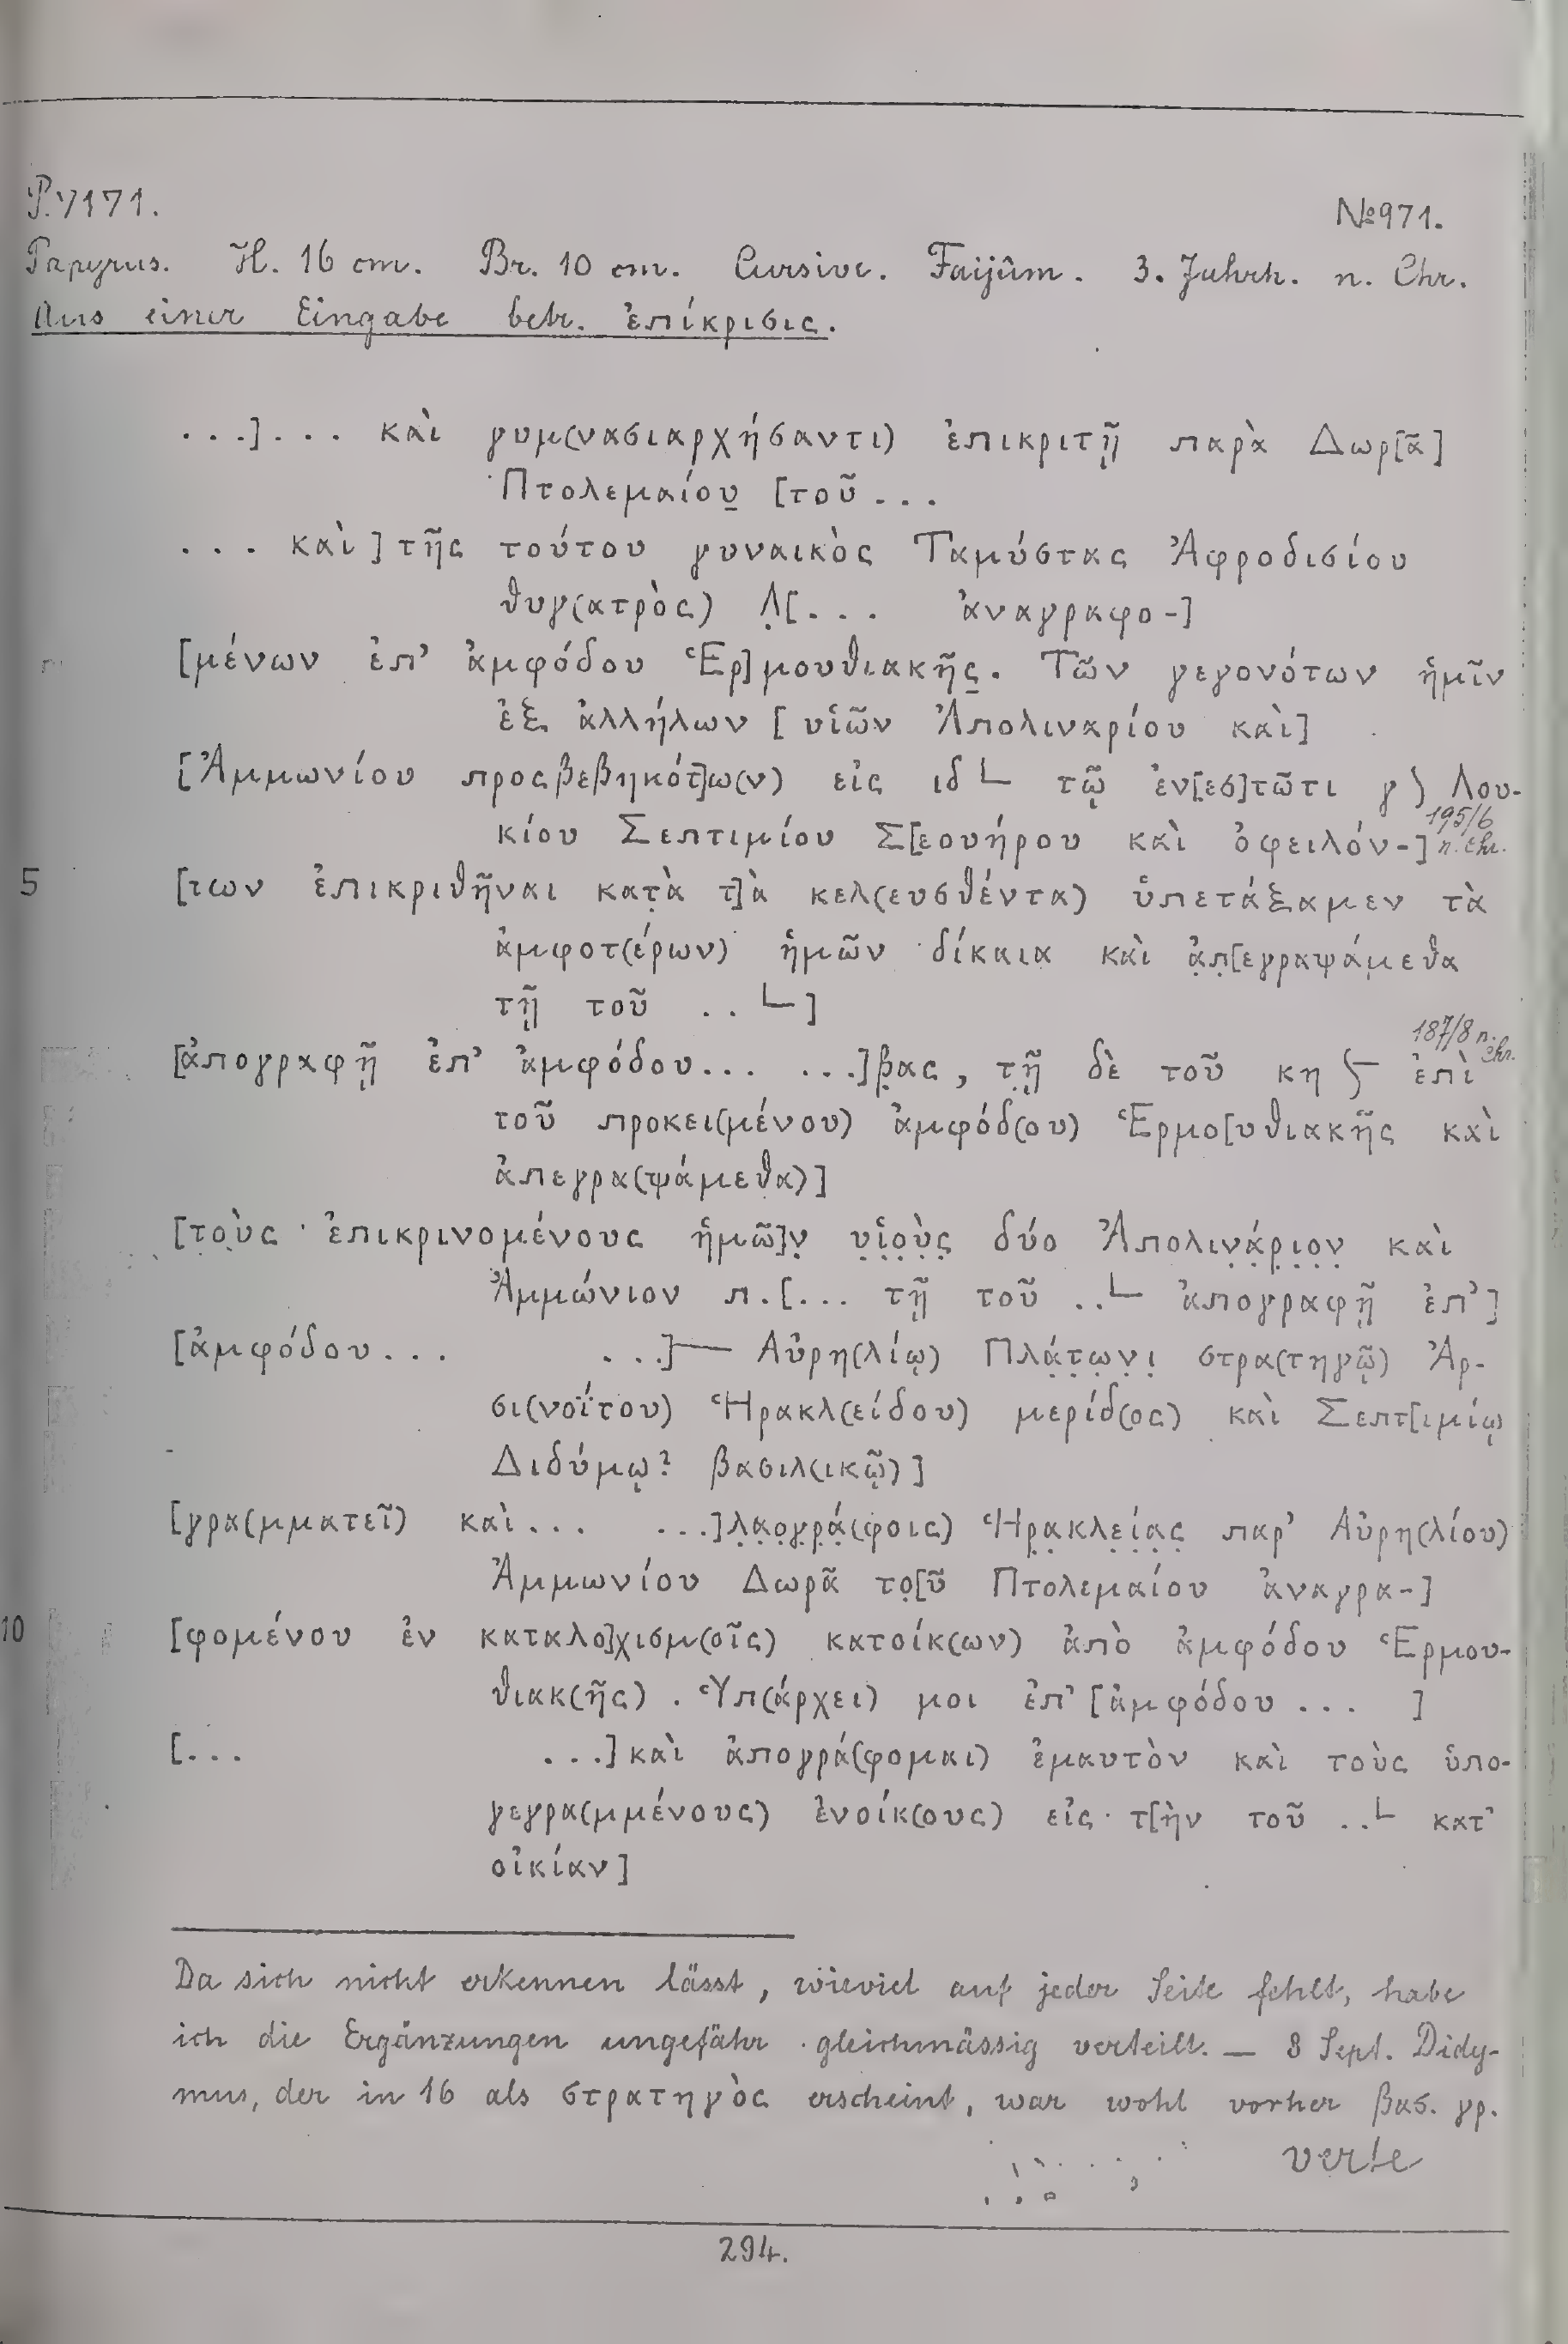 P. 7171. №971.
Papyrus. H. 16 cm. Br. 10 cm. Cursive. Faijûm. 3. Jahrh. n. Chr.
Aus einer Eingabe betr. ἐπίκρισις.
...]... καὶ γυμ(νασιαρχήσαντι) ἐπικριτῇ παρὰ Δωρ[ᾶ]
Πτολεμαίου [τοῦ...
... καὶ] τῆς τούτου γυναικὸς Ταμύστας Ἀφροδισίου
θυγ(ατρὸς) Λ̣[... ἀναγραφο-]
[μένων ἐπ’ ἀμφόδου Ἑρ]μουθιακῆς. Τῶν γεγονότων ἡμῖν
ἐξ ἀλλήλων [υἱῶν Ἀπολιναρίου καὶ]
[Ἀμμωνίου προσβεβηκότ]ω(ν) εἰς ιδ └ τῷ ἐν[εσ]τῶτι γ ) Λου-
κίου Σεπτιμίου Σ[εουήρου καὶ ὀφειλόν-] 195/6 n. Chr.
5 [των ἐπικριθῆναι κατὰ τ]ὰ κελ(ευσθέντα) ὑπετάξαμεν τὰ
ἀμφοτ(έρων) ἡμῶν δίκαια καὶ ἀ̣π̣[εγραψάμεθα
τῇ τοῦ .. └]
[ἀπογραφῇ ἐπ’ ἀμφόδου... ...]β̣ας, τῇ̣ δὲ τοῦ κη ʃ ἐπὶ 187/8 n. Chr.
τοῦ προκει(μένου) ἀμφόδ(ου) Ἑρμο[υθιακῆς καὶ
ἀπεγρα(ψάμεθα)]
[τοὺς ἐπικρινομένους ἡμῶ]ν̣ υ̣ἱ̣ο̣ὺ̣ς̣ δύο Ἀπολιν̣ά̣ρ̣ι̣ο̣ν̣ καὶ
Ἀμμώνιον π.[... τῇ τοῦ ..└ ἀπογραφῇ ἐπ’]
[ἀμφόδου... ...]— Αὐρη(λίῳ) Πλά̣τ̣ω̣ν̣ι̣ στρα(τηγῷ) Ἀρ-
σι(νοΐτου) Ἡρακλ(είδου) μερίδ(ος) καὶ Σεπτ[ιμίῳ
Διδύμῳ? βασιλ(ικῷ)]
[γρα(μματεῖ) καὶ... ...]λ̣α̣ο̣γ̣ρ̣ά̣(φοις) Ἡρ̣α̣κλε̣ί̣α̣ς̣ παρ’ Αὐρη(λίου)
Ἀμμωνίου Δωρᾶ το̣[ῦ Πτολεμαίου ἀναγρα-]
10 [φομένου ἐν καταλο]χισμ(οῖς) κατοίκ(ων) ἀπὸ ἀμφόδου Ἑρμου-
θιακ(ῆς). Ὑπ(άρχει) μοι ἐπ’ [ἀμφόδου... ]
[... ...] καὶ ἀπογρά(φομαι) ἐμαυτὸν καὶ τοὺς ὑπο-
γεγρα(μμένους) ἐνοίκ(ους) εἰς τ[ὴν τοῦ ..└ κατ’
οἰκίαν]
Da sich nicht erkennen lässt, wieviel auf jeder Seite fehlt, habe
ich die Ergänzungen ungefähr gleichmässig verteilt. — 8 Sept. Didy-
mus, der in 16 als στρατηγὸς erscheint, war wohl vorher βας. γρ.
verte
294.